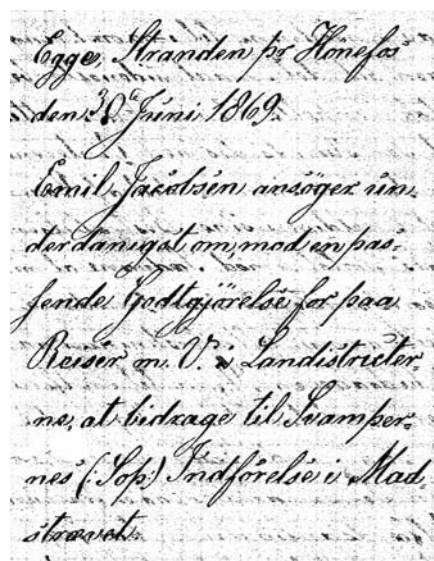 Egge, Stranden pr Hønefos
den 30te Juni 1869.
Emil Jacobsen ansøger un-
derdanigst om, mod en pas-
sende Godtgjörelse for paa
Reiser m. V. i Landistricter-
ne, at bidrage til Svamper-
nes (:Sop:) Indförelse i Mad-
stravet.